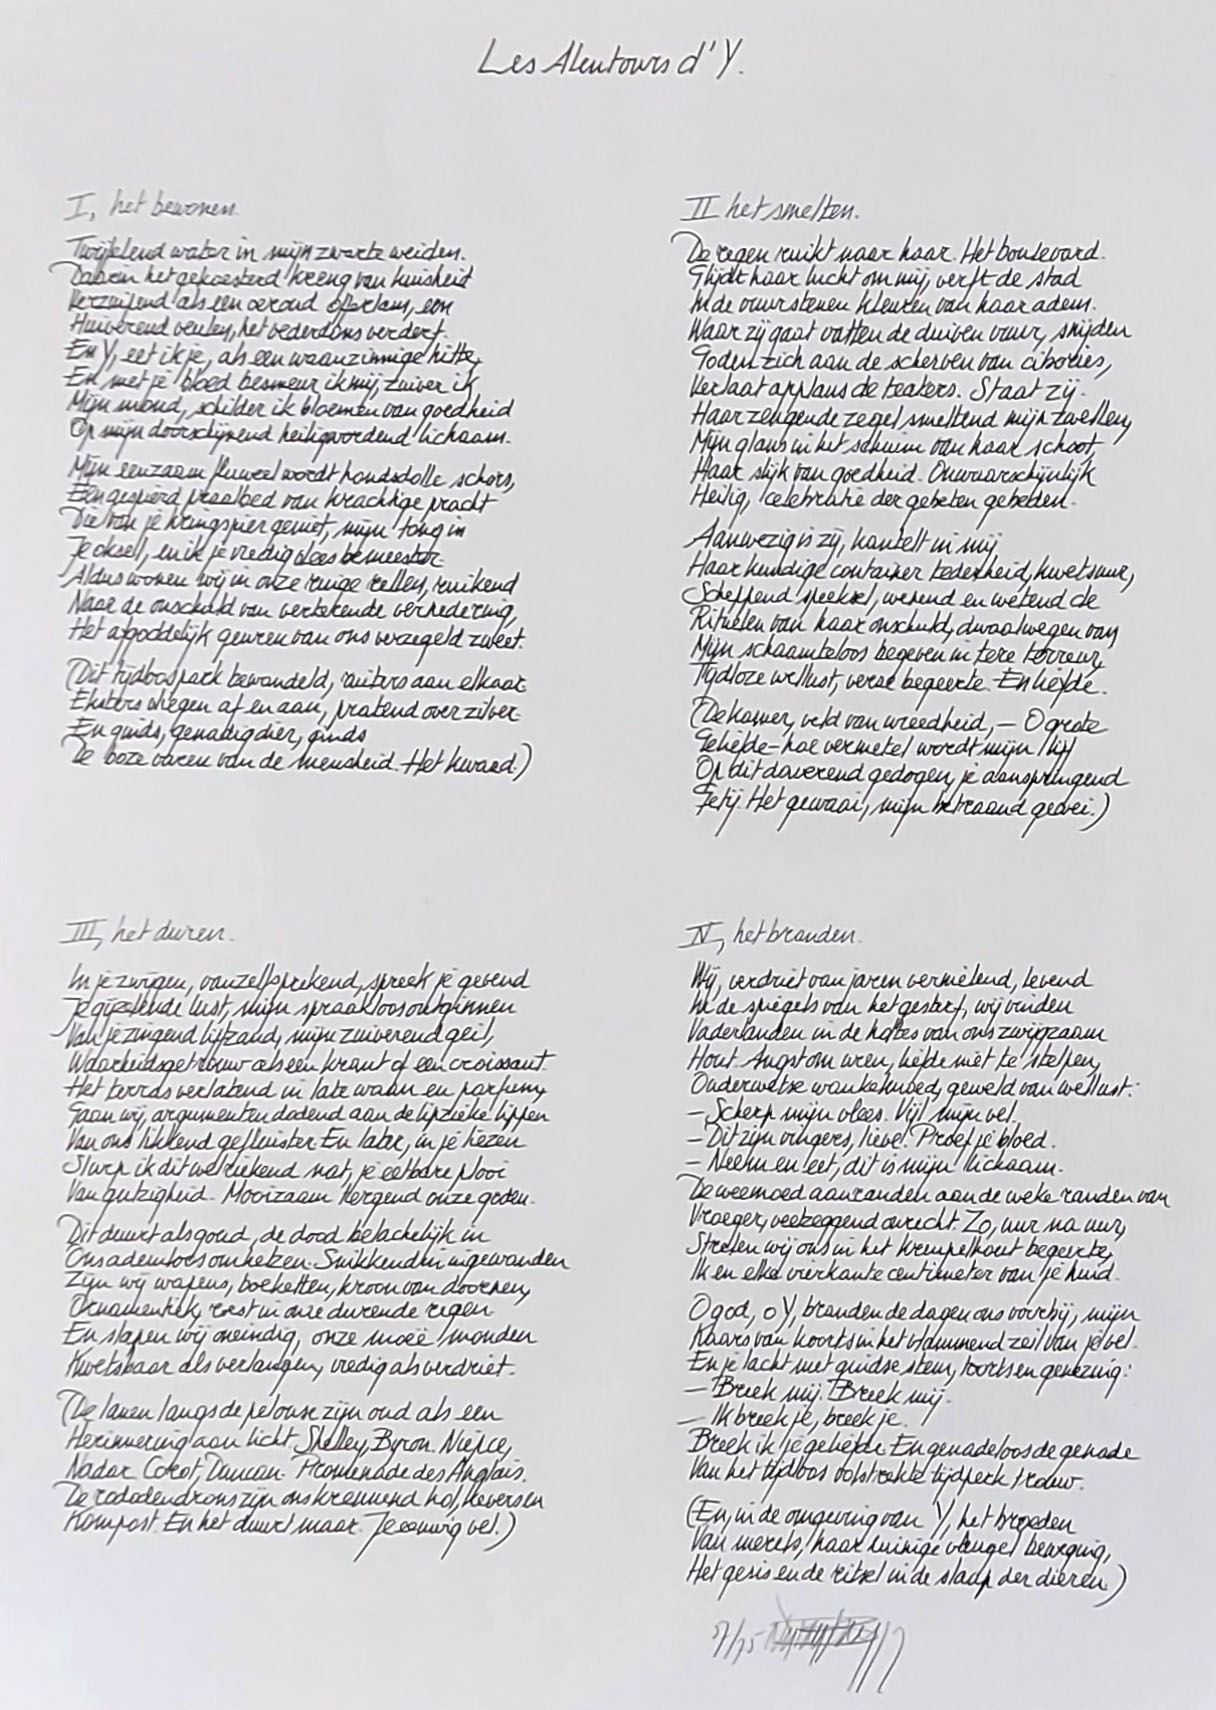 Les Alentours d'Y.
I, het bewonen.
Twijfelend water in mijn zwarte weiden.
Daarin het gekoesterd kreng van kuisheid
Verzuipend als een oeroud offerlam, een
Huiverend veulen, het vederdons verdert.
En Y, eet ik je, als een waanzinnige hitte,
En met je bloed besmeur ik mij, zuiver ik
Mijn mond, schilder ik bloemen van goedheid
Op mijn doorschijnend heiligwordend lichaam.
Mijn eenzaam fluweel wordt hondsdolle schors,
Een gespierd praalbed van krachtige pracht
Die van je kringspier geniet, mijn tong in
Je oksel, en ik je vredig vlees bemeester.
Aldus wonen wij in onze ruige cellen, ruikend
Naar de onschuld van vertekende vernedering,
Het afgoddelijk geuren van ons verzegeld zweet.
(Dit tijdloos park bewandeld, ruiters aan elkaar.
Eksters vliegen af en aan, pratend over zilver.
En ginds, genadig dier, ginds
De boze varen van de mensheid. Het kwaad.)
II het smelten.
De regen ruikt naar haar. Het boulevard.
Glijdt haar lucht om mij, verft de stad
In de vuurstenen kleuren van haar adem.
Waar zij gaat vatten de duiven vuur, snijden
Goden zich aan de scherven van cibories,
Verlaat applaus de teaters. Staat zij.
Haar zengende zegel smeltend mijn zwellen,
Mijn glans in het schuim van haar schoot,
Haar slijk van goedheid. Onwaarschijnlijk
Heilig, celebratie der gebeten gebeden.
Aanwezig is zij, kantelt in mij
Haar kundige container tederheid, kwetsuur,
Scheppend speeksel, wenend en wetend de
Rituelen van haar onschuld, dwaalwegen van
Mijn schaamteloos begeven in tere terreur,
Tijdloze wellust, verse begeerte. En liefde.
(De kamer, veld van wreedheid, – O grote
Geliefde – hoe vermetel wordt mijn lijf
Op dit daverend gedogen, je aanspringend
Getij. Het gewaai, mijn betraand gewei.)
III, het duren.
In je zwijgen, vanzelfsprekend, spreek je gevend
Je gijzelende lust, mijn spraakloos ontginnen
Van je zingend lijfzand, mijn zuiverend geil,
Waarheidsgetrouw als een krant of een croissant.
Het terras verlatend in late waan en parfum,
Gaan wij, argumenten dodend aan de lipzieke lippen
Van ons likkend gefluister. En later, in je liezen
Slurp ik dit welriekend nat, je eetbare plooi
Van gutzigheid. Mooizaam tergend onze goden.
Dit duurt als goud, de dood belachelijk in
Ons ademloos omhelzen. Snikkend in ingewanden
Zijn wij wapens, boeketten, kroon van doornen,
Ornamentiek, roest in onze durende regen
En slapen wij oneindig, onze moeë monden
Kwetsbaar als verlangen, vredig als verdriet.
(De lanen langs de pelouse zijn oud als een
Herinnering aan licht. Shelley, Byron. Niépce,
Nadar. Corot, Duncan. Promenade des Anglais.
De rododendrons zijn ons kreunend hof, kevers en
Kompost. En het duurt maar. Je eeuwig vel.)
IV, het branden.
Wij, verdriet van jaren vernielend, levend
In de spiegels van het gesterf, wij vinden
Vaderlanden in de holtes van ons zwijgzaam
Hout. Angst om uren, liefde niet te stelpen,
Onderwetse wankelmoed, geweld van wellust:
– Scherp mijn vlees. Vijl mijn vel.
– Dit zijn vingers, lieve. Proef je bloed.
– Neem en eet, dit is mijn lichaam.
De weemoed aanranden aan de weke randen van
Vroeger, veelzeggend onrecht. Zo, uur na uur,
Strelen wij ons in het krempelhout begeerte,
Ik en elke vierkante centimeter van je huid.
O god, o Y, branden de dagen ons voorbij, mijn
Kaars van koorts in het vlammend zeil van je vel.
En je lacht met guidse stem, toorts en genezing:
– Breek mij. Breek mij.
– Ik breek je, breek je.
Breek ik je geliefde. En genadeloos de genade
Van het tijdloos volstrekte tijdperk trouw.
(En, in de omgeving van Y, het broeden
Van merels, haar kuinige vleugel beweging,
Het gesis en de ritsel in de slaap der dieren.)